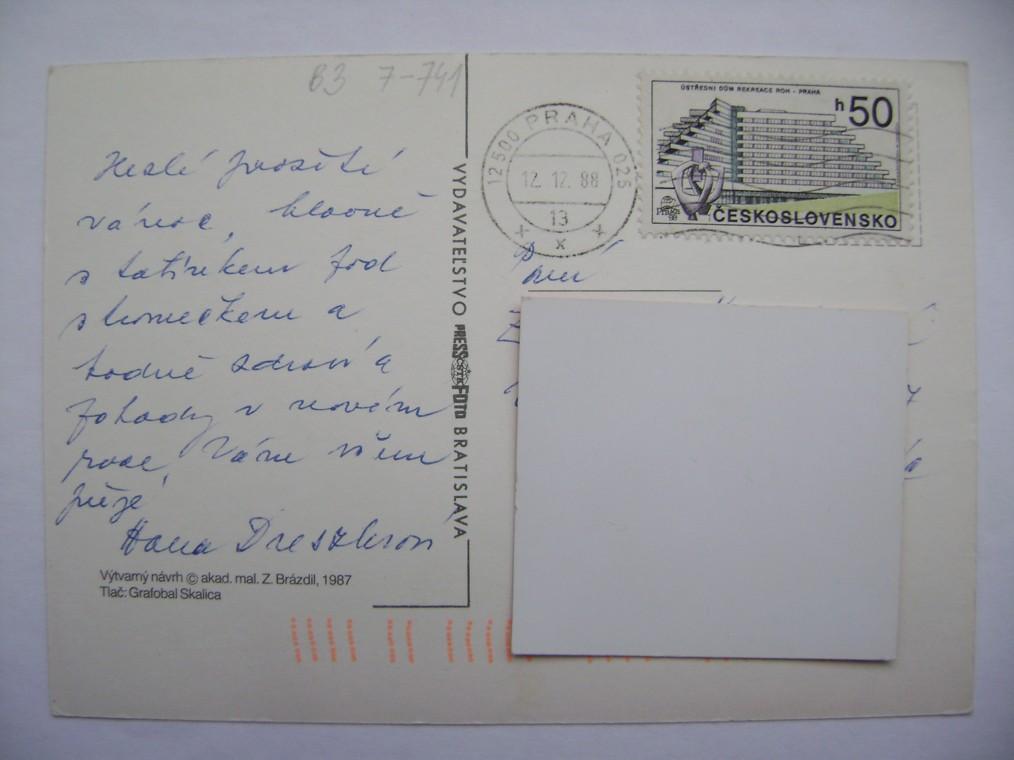 B3 7-741
Hezké prožití
vánoc, hlavně
s tatínkem pod
stromečkem a
hodně zdraví a
pohody v novém
roce, Vám všem
přeje
Hana
Výtvarný návrh © akad. mal. Z. Brázdil, 1987
Tlač: Grafobal Skalica
VYDAVATEĽSTVO PRESSFOTO BRATISLAVA
12500 PRAHA 025
12.12.88
13
ÚSTŘEDNÍ DŮM REKREACE ROH - PRAHA
h50
Praga 88
ČESKOSLOVENSKO
Paní